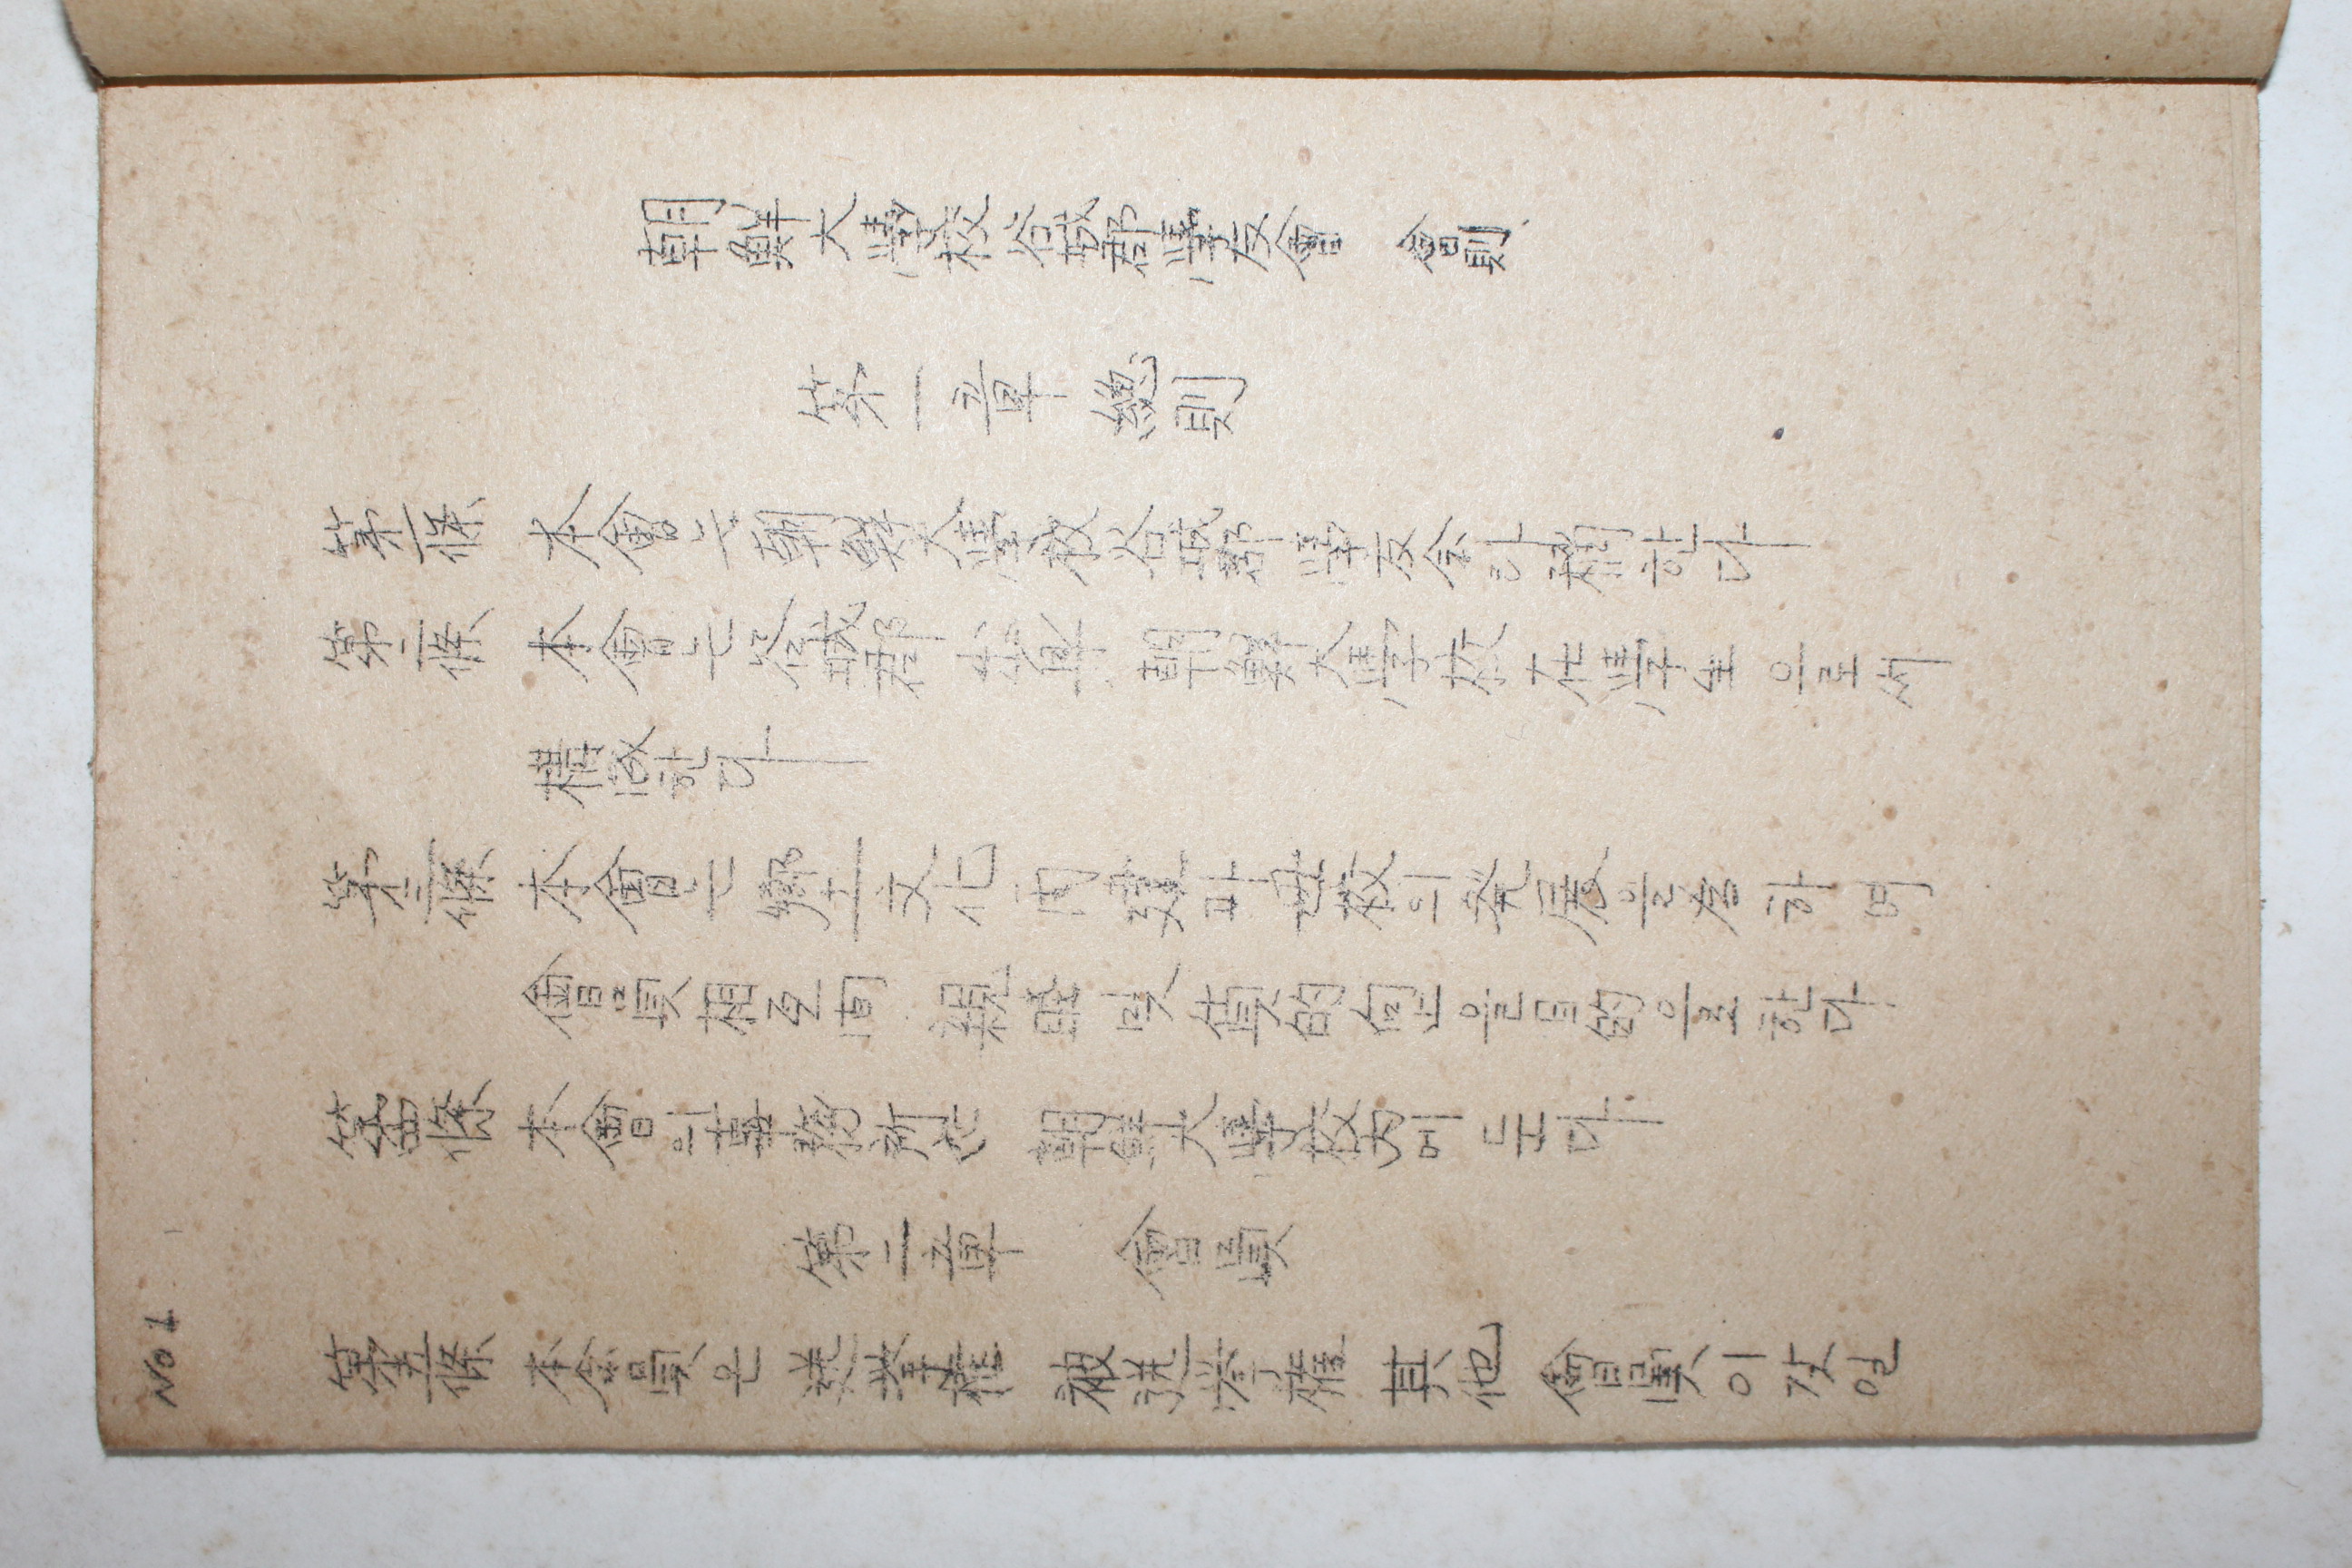 朝鮮大學校谷城郡學友會 會則
第一章 總則
第一條 本會는 朝鮮大學校谷城郡學友會라 稱한다
第二條 本會는 谷城郡 出身 朝鮮大學校 在學生 으로서
構成한다
第三條 本會는 鄕土文化 開發과 母校의 發展을 하며
會員相互間 親睦 및 的 을 目的으로 한다
第四條 本會의 事務所는 朝鮮大學校內에 둔다
第二章 會員
第五條 本會員은 選擧權 被選擧權 其他 會員이 갖인
No 1